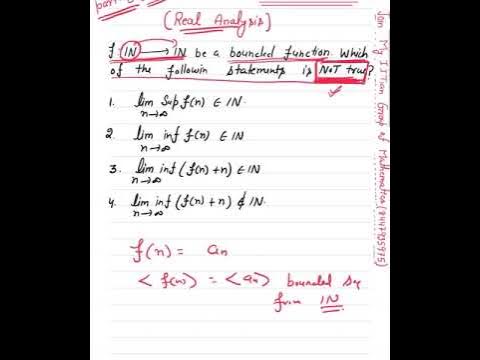 (Real Analysis)
f: IN → IN be a bounded function. Which
of the followin statements is NOT true?
1. lim Sup f(n) ∈ IN.
n→∞
2. lim inf f(n) ∈ IN
n→∞
3. lim inf (f(n)+n) ∈ IN
n→∞
4. lim inf (f(n)+n) ∉ IN.
n→∞
f(n) = an
< f(n) > = < an > bounded Sq
from IN
Join My IITian Group of Mathematics (8447935975)